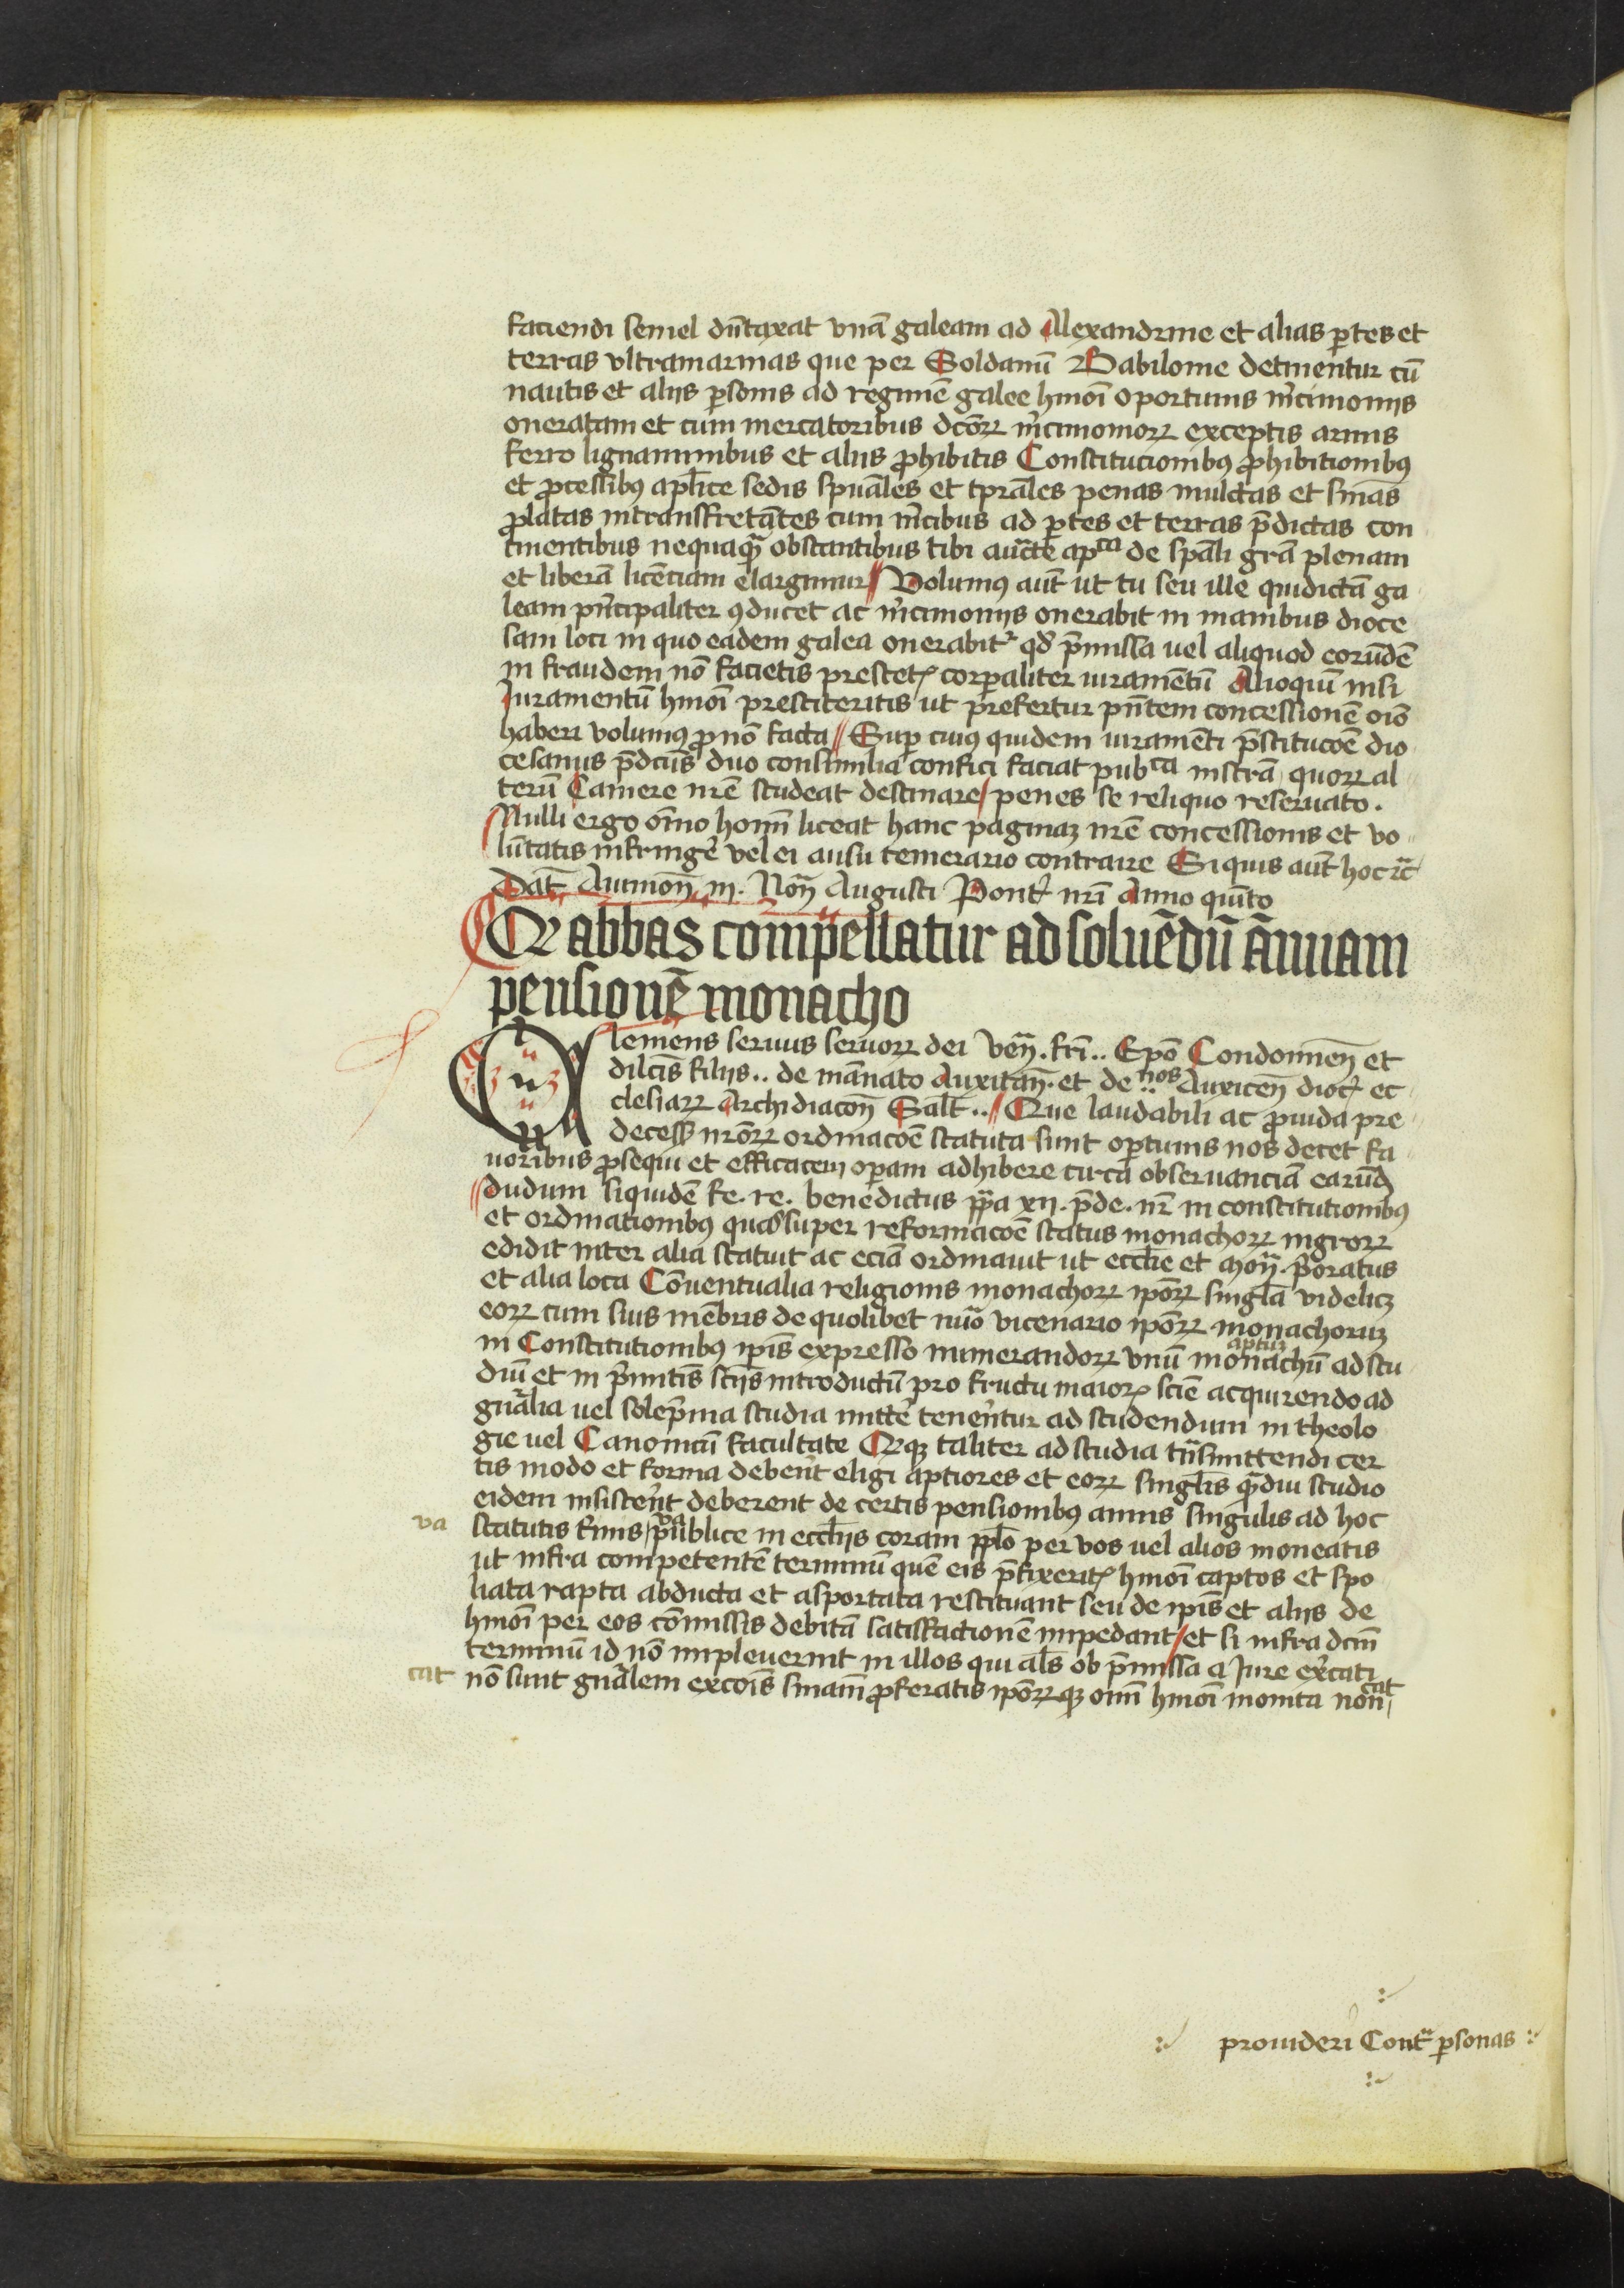 faciendi semel dūtaxat vnā galeam ad Alexandrine et alias ꝑtes et
terras vltramarinas que per Soldanū Babilonie detinentur cū
nautis et alijs ꝑsonis ad regimē galee hmōi oportunis m̄cimonijs
oneratam et cum mercatoribus dcōꝝ m̄cimonioꝝ exceptis armis
ferro lignaminibus et alijs ꝓhibitis Constitucionibꝫ ꝓhibitionibꝫ
et ꝓcessibꝫ apl̄ice sedis spūales et tꝑales penas mulctas et sn̄ias
ꝓlatas in transfretātes cum m̄cibus ad ꝑtes et terras p̄dictas con
tinentibus nequaqꝫ obstantibus tibi auc̄te apca de spāli grā plenam
et liberā licēciam elargimur Volumꝫ aūt ut tu seu ille qui dictā ga
leam pn̄cipaliter ꝯducet ac m̄cimonijs onerabit in manibus dioce
sani loci in quo eadem galea onerabitr̄ qd̄ p̄missa uel aliquod eorūdē
in fraudem nō facietis prestetꝭ corꝑaliter iuramētū Alioquī nisi
Iuramentū hmōi prestiteritis ut prefertur pn̄tem concessionē oīo
haberi volumꝫ ꝓ nō facta Suꝑ cuiꝫ quidem iuramēti p̄stitucōe dio
cesanus p̄dcūs duo consimilia confici faciat pubca instrā quoꝝ al
terū Camere nr̄e studeat destinare penes se reliquo reseruato.
Nulli ergo om̄o hoīm liceat hanc paginaꝫ nr̄e concessionis et vo
lūtatis infringe̅ vel ei ausu temerario contraire Siquis aūt hoc ⁊c̄
Dat̄ Auinoñ iij. Noñ Augusti Pont̄ nr̄i Anno quīto
Qꝫ abbas compellatur ad soluēdū ānuam
pensionē monacho
Clemens seruus seruoꝝ dei Veñ. fr̄i.. Epō Condomieñ et
dilcīs filijs.. de māнato Auxitañ. et de ..nos Auxiceñ dioc̄ ec
clesiaꝝ Archidiacoñ Salt̄.. Que laudabili ac ꝓuida pre
decess̄ nr̄oꝝ ordinacōe statuta sunt oꝑtunis nos decet fa
uoribus ꝓsequi et efficacem oꝑam adhibere circa obseruanciā earūd
dudum siquidē fe. re. benedictus pp̄a xij. p̄de. nr̄ in constitutionibꝫ
et ordinationibꝫ quas super reformacōe status monachoꝝ nigroꝝ
edidit inter alia statuit ac eciā ordinauit ut eccl̄ie et moñ. p̄oratus
et alia loca Cōuentualia religionis monachoꝝ ip̄oꝝ singl̄a videlicꝫ
eoꝝ cum suis mēbris de quolibet nūo vicenario ip̄oꝝ monachoruꝫ
in Constitutionibus ip̄is expresso numerandoꝝ vnū aptuꝫ monachū ad stu
diū et in p̄mitīs sciīs introductū pro fructu maioꝭ sciē acquirendo ad
gnāl̄ia uel solep̄nia studia mitte̅ tenen̄tur ad studendum in theolo
gie uel Canonicū facultate Qꝫqꝫ taliter ad studia tn̄smittendi cer
tis modo et forma deben̄t eligi aptiores et eoꝝ singl̄is qᵃdiu studio
eidem insisten̄t deberent de certis pensionibꝫ annis singulis ad hoc
va statutis firmis publice in eccl̄ijs coram pplō per vos uel alios moneatis
ut infra competentē terminū quē eis p̄fixeritꝭ hmōi captos et spo
liata rapta abducta et asportata restituant seu de ip̄is et alijs de
hmōi per eos cōmissis debitā satisfactionē impedant et si infra dcm̄
terminū id nō impleuerint in illos qui al̄s ob p̄missa a Jure ex̄cati
cat nō sunt gnālem excōis sn̄iam̄ ꝓferatis ip̄oꝝqꝫ oīm hmōi monita non cat
prouideri Contᵃ ꝑsonas